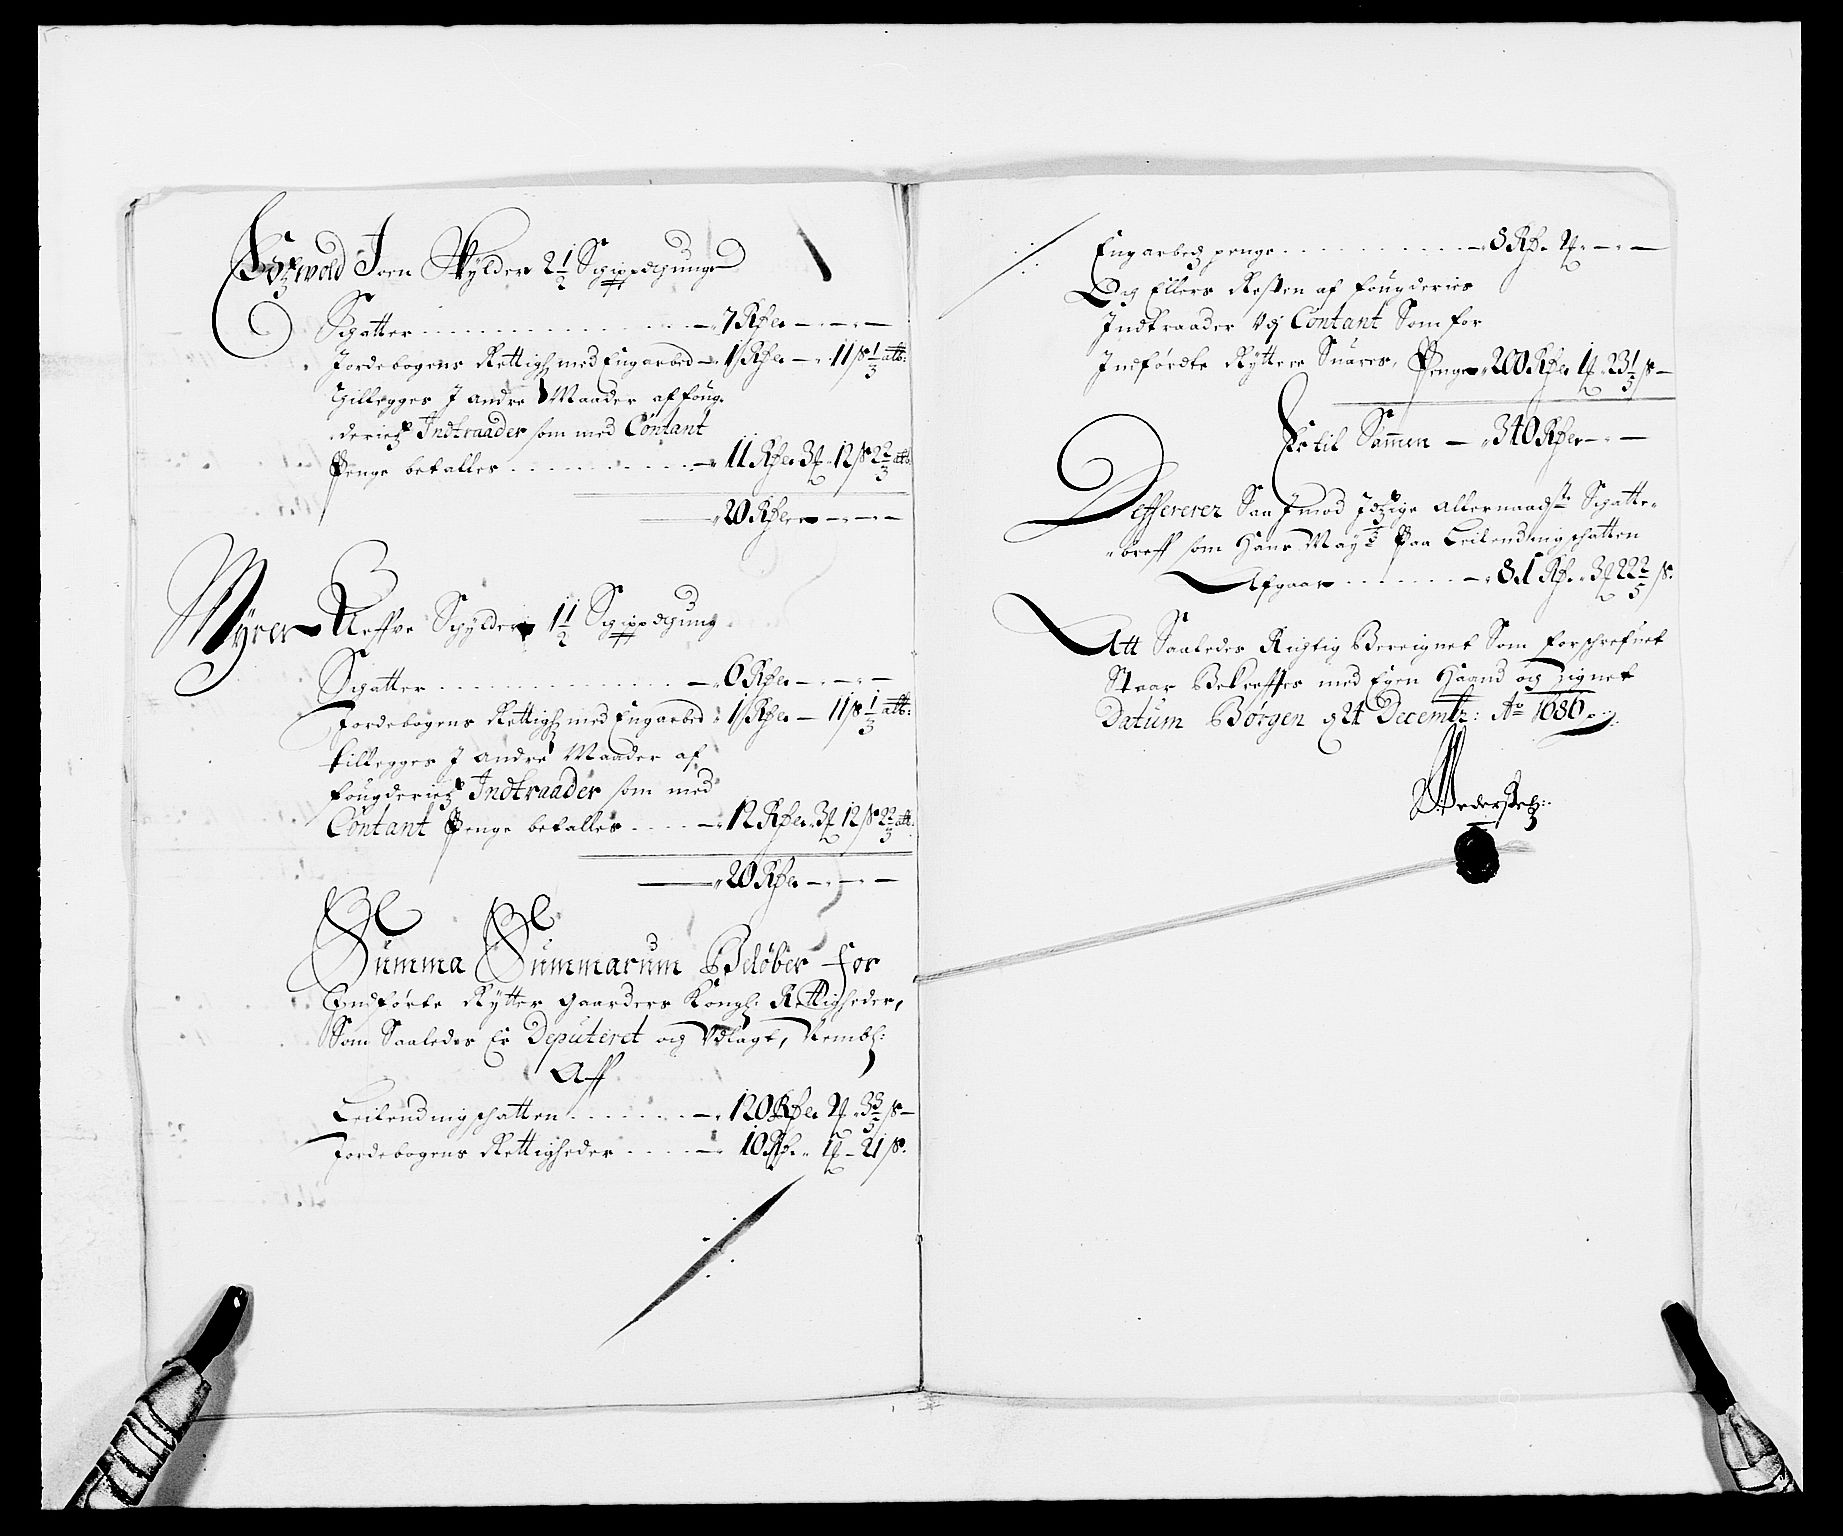 Joen Skylder 2 1/2 Schippdh: tunge
Schatter - - - - 7 Rdr. - - -
Jordebogens Rettigh: med Engarbed - 1 Rdr. - 11 ß 1/3 alb:
Tillegges J andre Maader af foug-
deriets Indtraader som med Contant
Penge betalles - - - 11 Rdr. 3 ƒ 12 ß 2 2/3 alb.
20 Rdr. - - -
Myrer Skylder 1 1/2 Schippdh: tung
Schatter - - - - 6 Rdr. - - -
Jordebogens Rettigh: med Engarbed - 1 Rdr. - 11 ß 1/3 alb:
tillegges J andre Maader af
fougderiets Indtraader som med
Contant Penge betalles - - - 12 Rdr. 3 ƒ 12 ß 2 2/3 alb.
20 Rdr. - - -
Summa Summarum Beløber for
Indførte Rytter Gaarders Kongl: Rettigheder,
Som Saaledes Er Deputeret og Vdlagt, Nembl:
Aff
Leilendingschatten - - - 120 Rdr. 2 ƒ 3 3/5 ß -
Jordebogens Rettigheder - - - 10 Rdr. 1 ƒ - 21 ß.
Engarbeds penge - - - 8 Rdr. 2 ƒ - - -
Og Ellers Resten af fougderies
Indtraader Vdj Contant Som for
Indførdte Ryttere Suares, Penge 200 Rdr. 1 ƒ 23 1/3 ß -
Er til Sammen - 340 Rdr. - -
Deffererer Saa Jmod Allernaadste Schatte-
breff som Hans Mayts Paa Leilendingschatten
Afgaar - - - 81 Rdr. 3 ƒ 22 2/5 ß.
Att Saaledes Rigtig Beregnet Som forschrefuet
Staar Bekreffter med Egen Haand og Zignet
Datum Børgen d 24 Decembr: Ao 1686